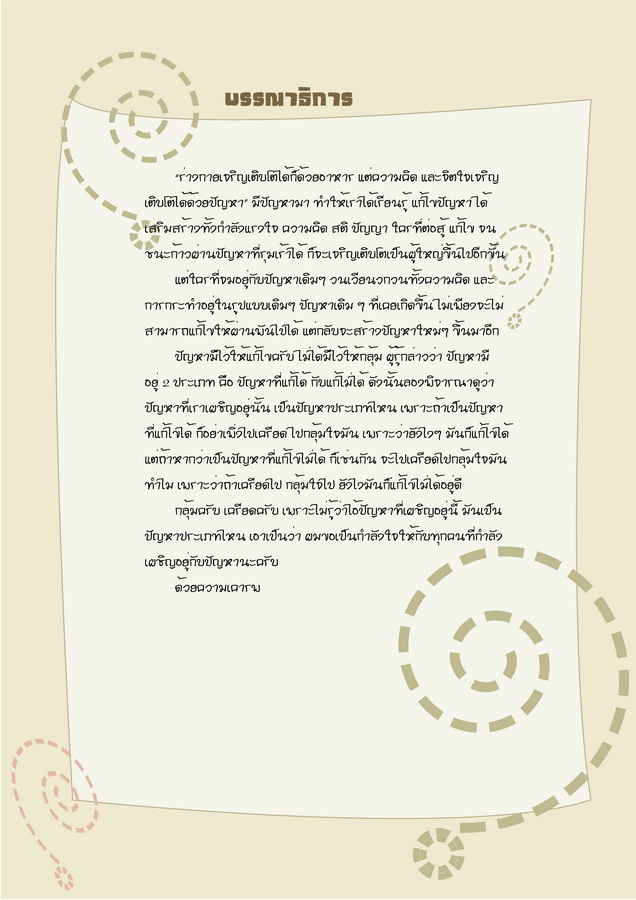 บรรณาธิการ
"ร่างกายเจริญเติบโตได้ก็ด้วยอาหาร แต่ความคิด และจิตใจเจริญ
เติบโตได้ด้วยปัญหา" มีปัญหามา ทำให้เราได้เรียนรู้ แก้ไขปัญหาได้
เสริมสร้างทั้งกำลังแรงใจ ความคิด สติ ปัญญา ใครที่ต่อสู้ แก้ไข จน
ชนะก้าวผ่านปัญหาที่รุมเร้าได้ ก็จะเจริญเติบโตเป็นผู้ใหญ่ขึ้นไปอีกขั้น
แต่ใครที่จมอยู่กับปัญหาเดิมๆ วนเวียนวกวนทั้งความคิด และ
การกระทำอยู่ในรูปแบบเดิมๆ ปัญหาเดิม ๆ ที่เคยเกิดขึ้นไม่เพียงจะไม่
สามารถแก้ไขให้ผ่านพ้นไปได้ แต่กลับจะสร้างปัญหาใหม่ๆ ขึ้นมาอีก
ปัญหามีไว้ให้แก้ไขครับ ไม่ได้มีไว้ให้กลุ้ม ผู้รู้กล่าวว่า ปัญหามี
อยู่ 2 ประเภท คือ ปัญหาที่แก้ได้ กับแก้ไม่ได้ ดังนั้นลองพิจารณาดูว่า
ปัญหาที่เราเผชิญอยู่นั้น เป็นปัญหาประเภทไหน เพราะถ้าเป็นปัญหา
ที่แก้ไขได้ ก็อย่าเพิ่งไปเครียด ไปกลุ้มใจมัน เพราะว่ายังไงๆ มันก็แก้ไขได้
แต่ถ้าหากว่าเป็นปัญหาที่แก้ไขไม่ได้ ก็เช่นกัน จะไปเครียดไปกลุ้มใจมัน
ทำไม เพราะว่าถ้าเครียดไป กลุ้มใจไป ยังไงมันก็แก้ไขไม่ได้อยู่ดี
กลุ้มครับ เครียดครับ เพราะไม่รู้ว่าไอ้ปัญหาที่เผชิญอยู่นี้ มันเป็น
ปัญหาประเภทไหน เอาเป็นว่า ผมขอเป็นกำลังใจให้กับทุกคนที่กำลัง
เผชิญอยู่กับปัญหานะครับ
ด้วยความเคารพ